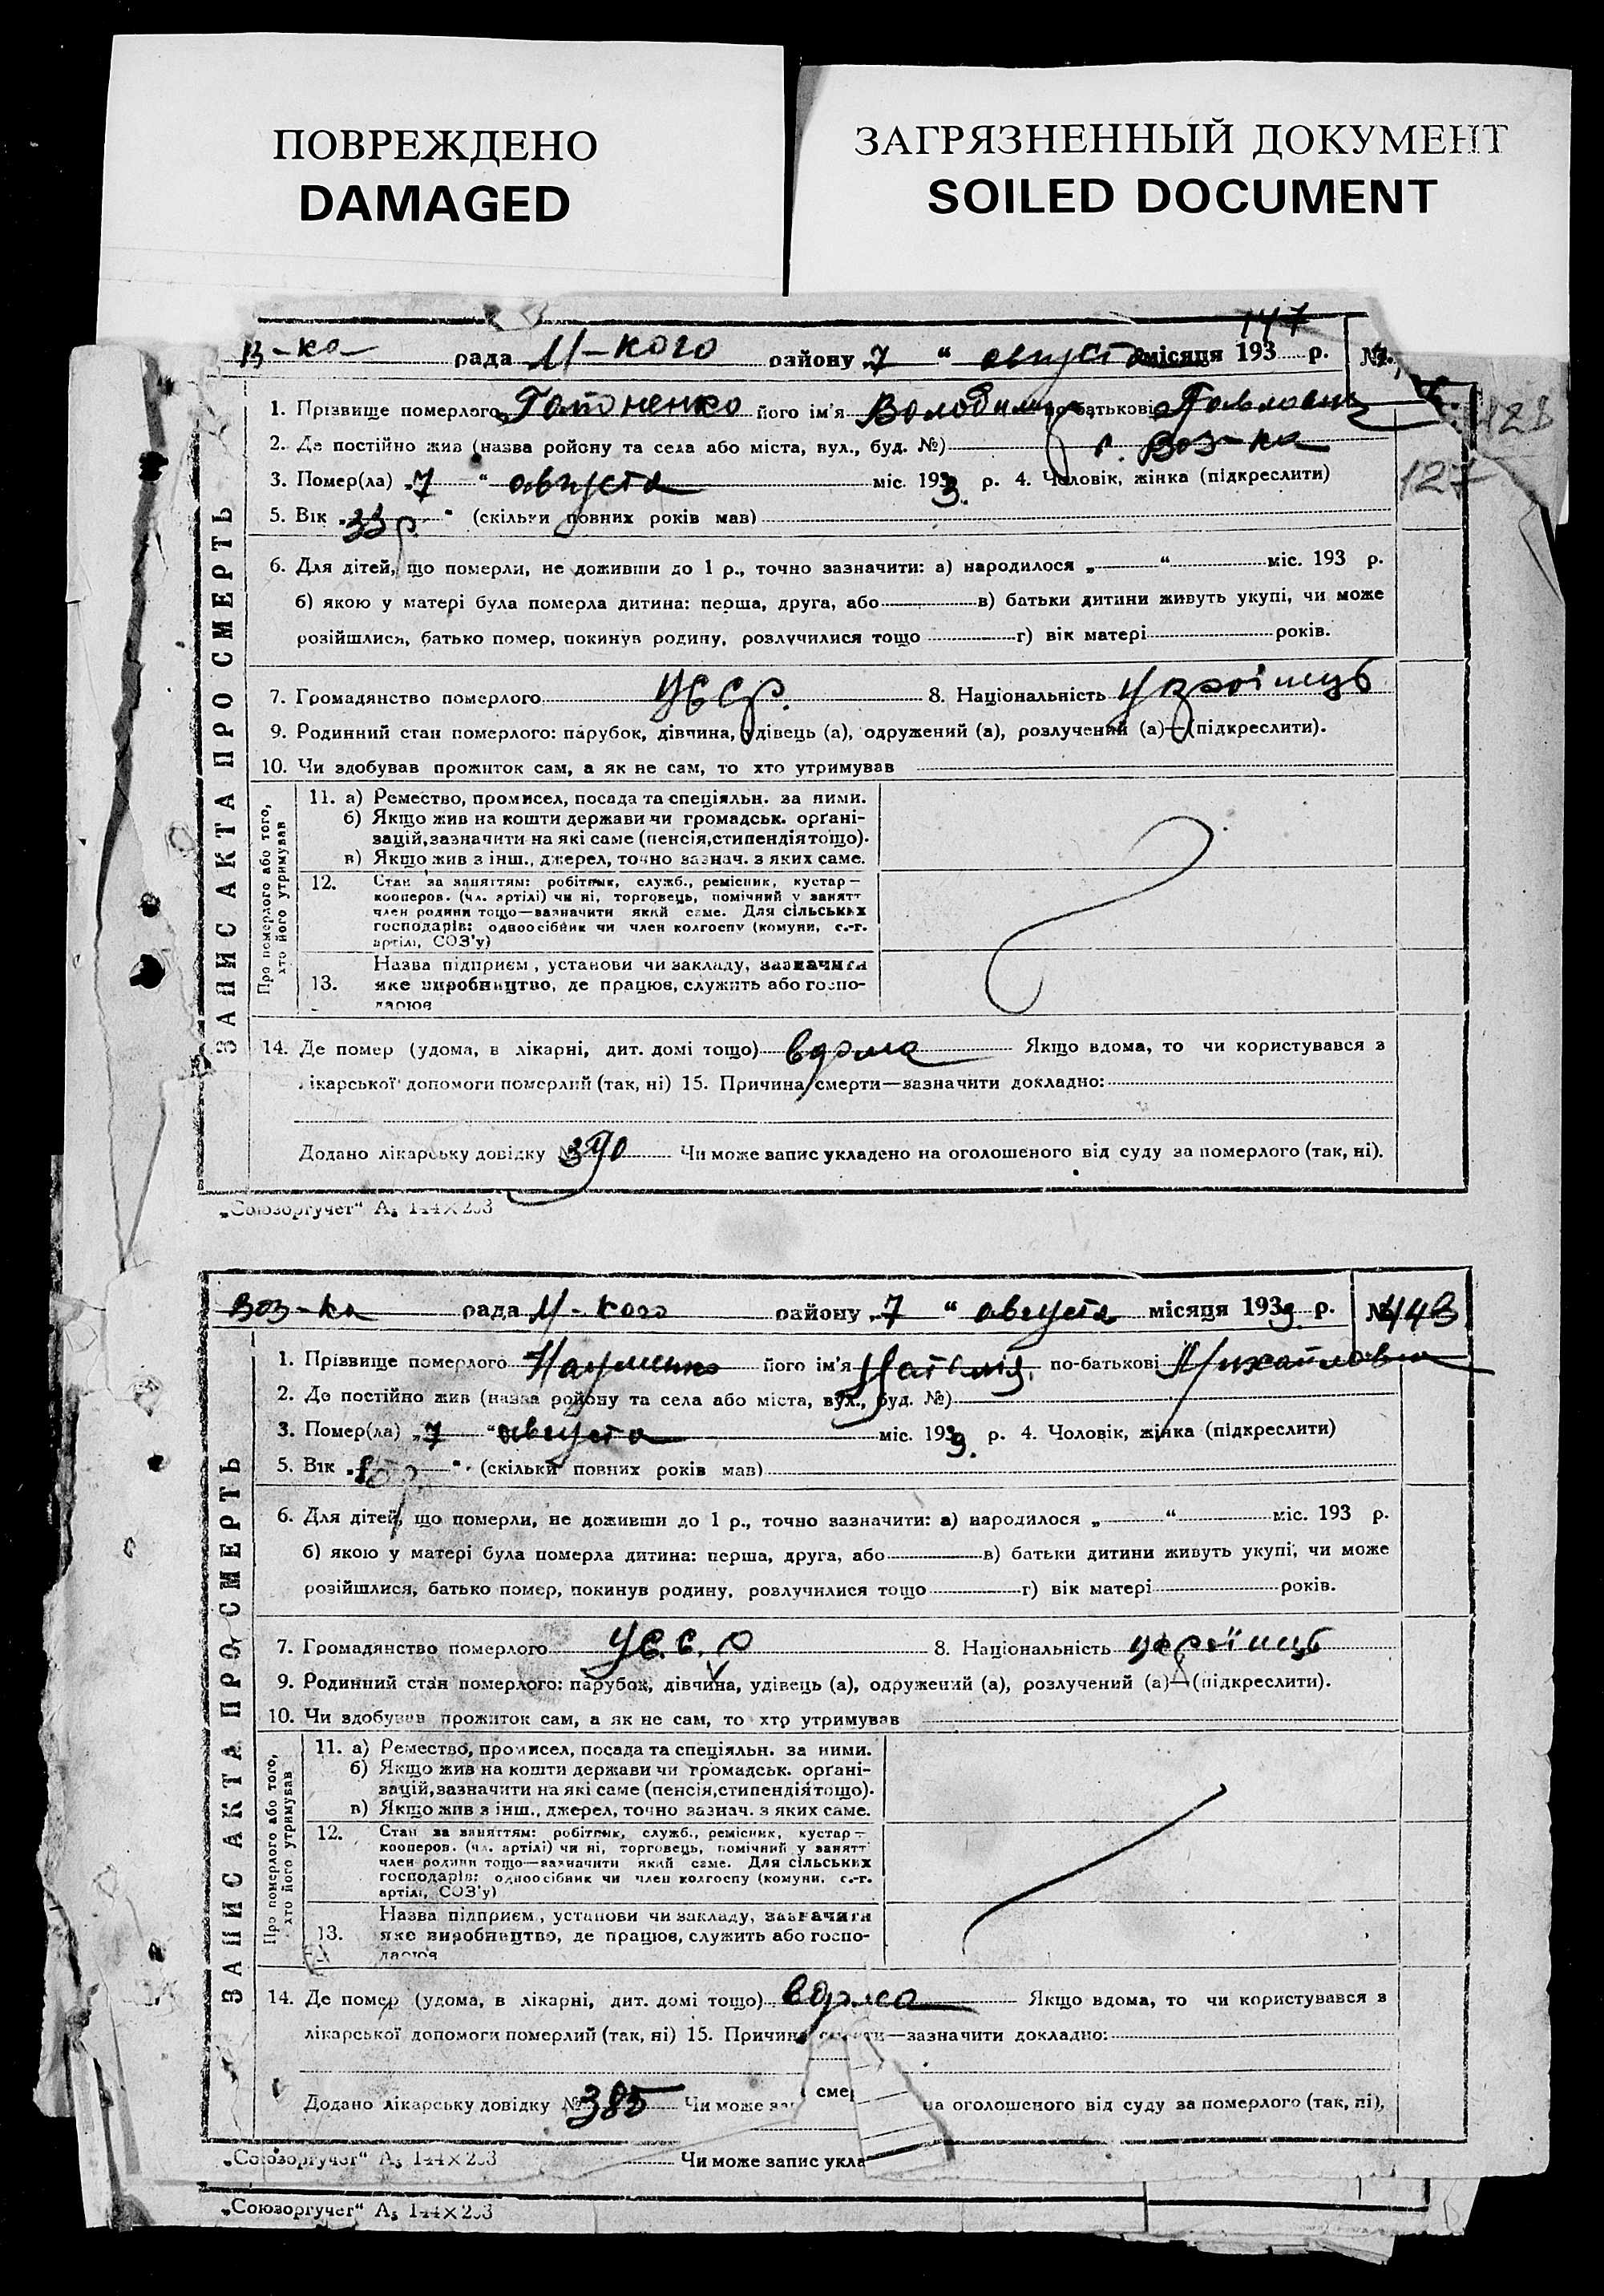 ПОВРЕЖДЕНО
DAMAGED
ЗАГРЯЗНЕННЫЙ ДОКУМЕНТ
SOILED DOCUMENT
147
В-ка рада М-кого району 7 " августа місяця 193 р. №
1. Прізвище померлого Гапоненко його ім'я Володимир по-батькові Павлович
128
2. Де постійно жив (назва ройону та села або міста, вул., буд. №) с. Воз-ка
3. Помер(ла) „7 " августа міс. 193 3. р. 4. Чоловік, жінка (підкреслити)
127
5. Вік „33 р. " (скільки повних років мав)
6. Для дітей, що померли, не доживши до 1 р., точно зазначити: а) народилося „ " міс. 193 р.
б) якою у матері була померла дитина: перша, друга, або в) батьки дитини живуть укупі, чи може
розійшлися, батько помер, покинув родину, розлучилися тощо г) вік матері років.
7. Громадянство померлого УССР. 8. Національність українець
9. Родинний стан померлого: парубок, дівчина, удівець (а), одружений (а), розлучений (а)—(підкреслити).
10. Чи здобував прожиток сам, а як не сам, то хто утримував
ЗАПИС АКТА ПРО СМЕРТЬ
Про померлого або того, хто його утримував
11. а) Ремество, промисел, посада та спеціяльн. за ними.
б) Якщо жив на кошти держави чи громадськ. орґані-
зацій, зазначити на які саме (пенсія, стипендія тощо).
в) Якщо жив з інш., джерел, точно зазнач. з яких саме.
12. Стан за заняттям: робітник, служб., ремісник, кустар—
кооперов. (чл. артілі) чи ні, торговець, помічний у занятт
член родини тощо—зазначити який саме. Для сільських
господарів: одноосібник чи член колгоспу (комуни, с.-г.
артілі, СОЗ'у)
Назва підприєм, установи чи закладу, зазначити
13. яке виробництво, де працює, служить або госпо-
дарює
14. Де помер (удома, в лікарні, дит. домі тощо) вдома Якщо вдома, то чи користувався з
лікарської допомоги померлий (так, ні) 15. Причина смерти—зазначити докладно:
Додано лікарську довідку № 390 Чи може запис укладено на оголошеного від суду за померлого (так, ні).
„Союзоргучет" А5 144×203
Воз-ка рада М-кого району 7 " августа місяця 193 3. р. № 148
1. Прізвище померлого Науменко його ім'я Наталія по-батькові Михайловна
2. Де постійно жив (назва ройону та села або міста, вул., буд. №)
3. Помер(ла) „7 " августа міс. 193 3. р. 4. Чоловік, жінка (підкреслити)
5. Вік „ р. " (скільки повних років мав)
6. Для дітей, що померли, не доживши до 1 р., точно зазначити: а) народилося „ " міс. 193 р.
б) якою у матері була померла дитина: перша, друга, або в) батьки дитини живуть укупі, чи може
розійшлися, батько помер, покинув родину, розлучилися тощо г) вік матері років.
7. Громадянство померлого УС.С.Р 8. Національність українець
9. Родинний стан померлого: парубок, дівчина, удівець (а), одружений (а), розлучений (а)—(підкреслити).
10. Чи здобував прожиток сам, а як не сам, то хто утримував
ЗАПИС АКТА ПРО СМЕРТЬ
Про померлого або того, хто його утримував
11. а) Ремество, промисел, посада та спеціяльн. за ними.
б) Якщо жив на кошти держави чи громадськ. орґані-
зацій, зазначити на які саме (пенсія, стипендія тощо).
в) Якщо жив з інш., джерел, точно зазнач. з яких саме.
12. Стан за заняттям: робітник, служб., ремісник, кустар—
кооперов. (чл. артілі) чи ні, торговець, помічний у занятт
член родини тощо—зазначити який саме. Для сільських
господарів: одноосібник чи член колгоспу (комуни, с.-г.
артілі, СОЗ'у)
Назва підприєм, установи чи закладу, зазначити
13. яке виробництво, де працює, служить або госпо-
дарює
14. Де помер (удома, в лікарні, дит. домі тощо) вдома Якщо вдома, то чи користувався з
лікарської допомоги померлий (так, ні) 15. Причина смерти—зазначити докладно:
сме
Додано лікарську довідку № 385 Чи може за на оголошеного від суду за померлого (так, ні),
„Союзоргучет" А5 144×203 Чи може запис укла
„Союзоргучет" А5 144×203